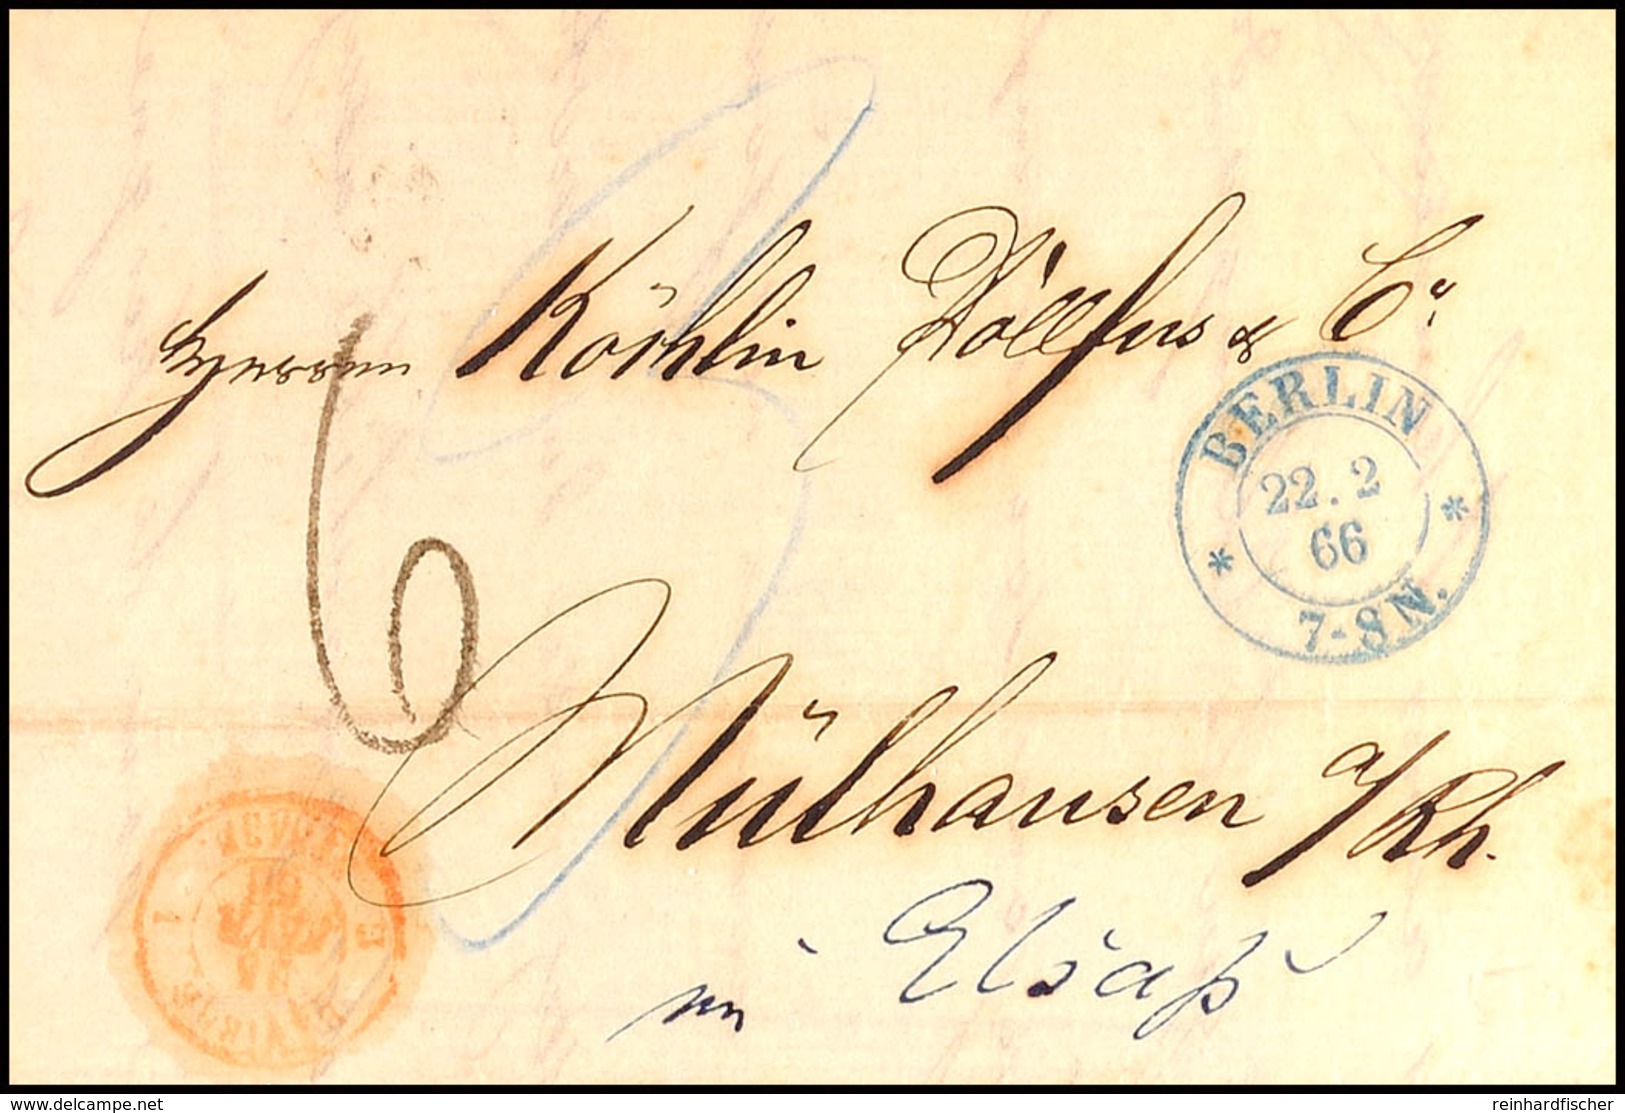 Herren Köchlin Dollfus & Cie
BERLIN
22. 2
66
* *
7-8 N.
6
3
Mülhausen a/Rh.
im Elsaß
www.delcampe.net
reinhardfischer